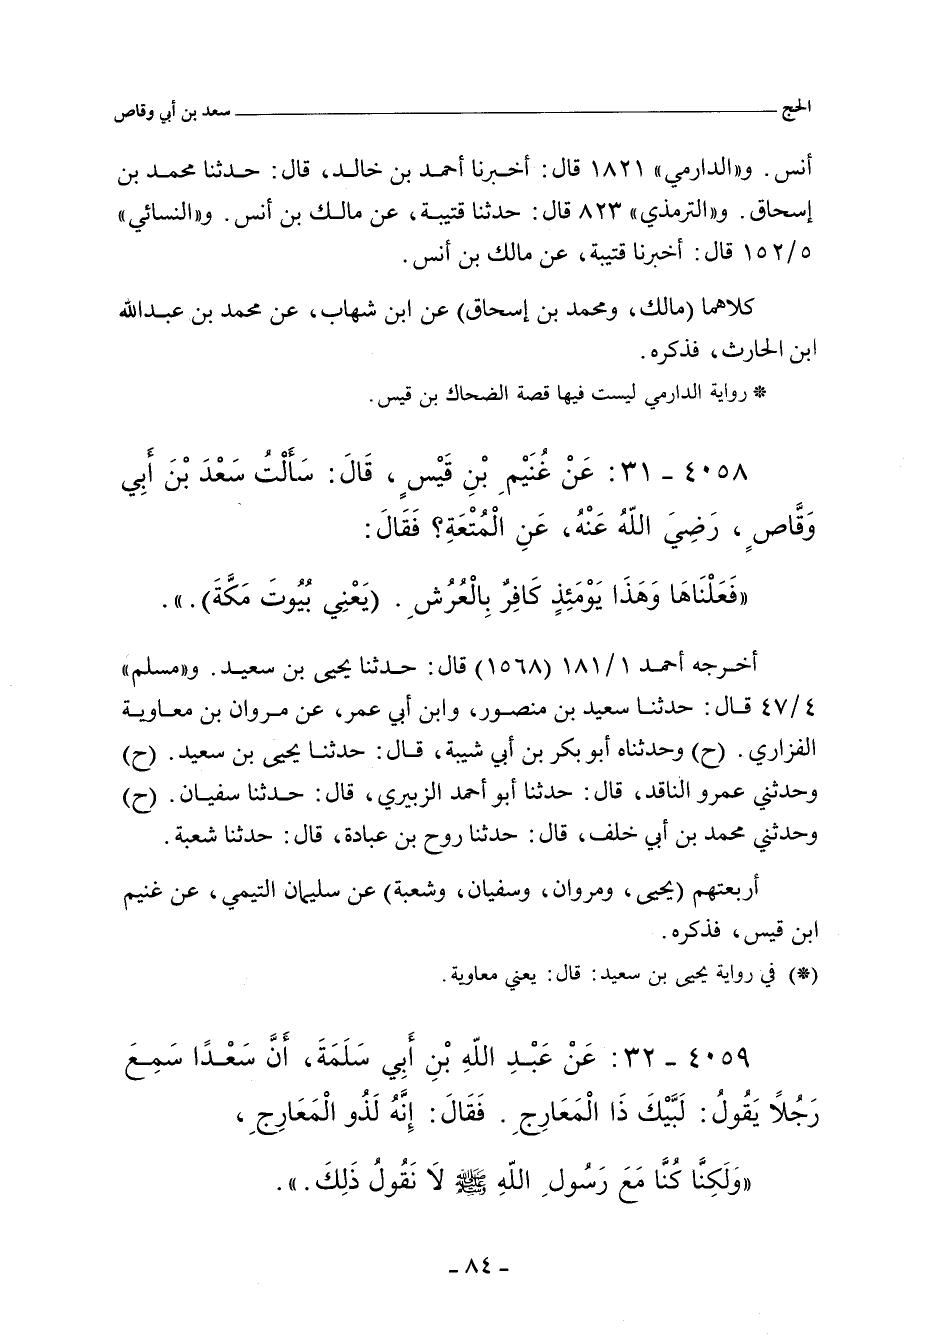 الحج ــــــــــــــــــــ سعد بن أبي وقاص
أنس. و«الدارمي» ١٨٢١ قال: أخبرنا أحمد بن خالد، قال: حدثنا محمد بن
إسحاق. و«الترمذي» ٨٢٣ قال: حدثنا قتيبة، عن مالك بن أنس. و«النسائي»
١٥٢/٥ قال: أخبرنا قتيبة، عن مالك بن أنس.
كلاهما (مالك، ومحمد بن إسحاق) عن ابن شهاب، عن محمد بن عبدالله
ابن الحارث، فذكره.
* رواية الدارمي ليست فيها قصة الضحاك بن قيس.
٤٠٥٨ - ٣١: عَنْ غُنَيْمِ بْنِ قَيْسٍ، قَالَ: سَأَلْتُ سَعْدَ بْنَ أَبِي
وَقَّاصٍ، رَضِيَ اللّهُ عَنْهُ، عَنِ الْمُتْعَةِ؟ فَقَالَ:
«فَعَلْنَاهَا وَهَذَا يَوْمَئِذٍ كَافِرٌ بِالْعُرُشِ. (يَعْنِي بُيُوتَ مَكَّةَ).».
أخرجه أحمد ١٨١/١ (١٥٦٨) قال: حدثنا يحيى بن سعيد. و«مسلم»
٤٧/٤ قال: حدثنا سعيد بن منصور، وابن أبي عمر، عن مروان بن معاوية
الفزاري. (ح) وحدثناه أبو بكر بن أبي شيبة، قال: حدثنا يحيى بن سعيد. (ح)
وحدثني عمرو الناقد، قال: حدثنا أبو أحمد الزبيري، قال: حدثنا سفيان. (ح)
وحدثني محمد بن أبي خلف، قال: حدثنا روح بن عبادة، قال: حدثنا شعبة.
أربعتهم (يحيى، ومروان، وسفيان، وشعبة) عن سليمان التيمي، عن غنيم
ابن قيس، فذكره.
(*) في رواية يحيى بن سعيد: قال: يعني معاوية.
٤٠٥٩ - ٣٢: عَنْ عَبْدِ اللّهِ بْنِ أَبِي سَلَمَةَ، أَنَّ سَعْدًا سَمِعَ
رَجُلاً يَقُولُ: لَبَّيْكَ ذَا الْمَعَارِجِ. فَقَالَ: إِنَّهُ لَذُو الْمَعَارِجِ،
«وَلَكِنَّا كُنَّا مَعَ رَسُولِ اللّهِ ﷺ لاَ نَقُولُ ذَلِكَ.».
- ٨٤ -